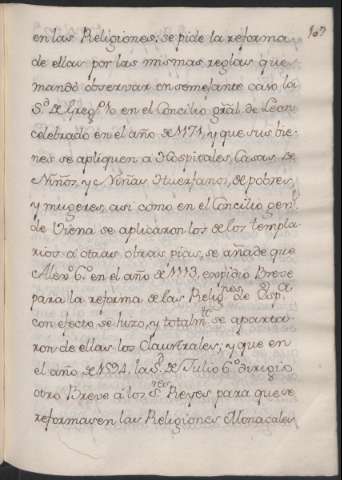 107
en las Religiones: se pide la reforma
de ellas por las mismas reglas que
mandó observar en semejante caso la
S.d de Greg.º 10 en el Concilio gral de Lean
celebrado en el año de 1171, y que sus bie-
nes se apliquen a Hospitales, Casas de
Niños, y Niñas Huerfanos, de pobres,
y mugeres, asi como en el Concilio gen.l
de Viena se aplicaron los de los templa-
rios a otras obras pias, se añade que
Alex.º 6.º en el año de 1113, expidio Breve
para la reforma de las Relig.nes de Esp.a
con efecto se hizo, y totalm.te se aparta-
ron de ellas los Claustrales; y que en
el año de 1524, la S.d de Julio 6.º dirigio
otro Breve a los S.res Reyes para que se
reformasen las Religiones Monacales